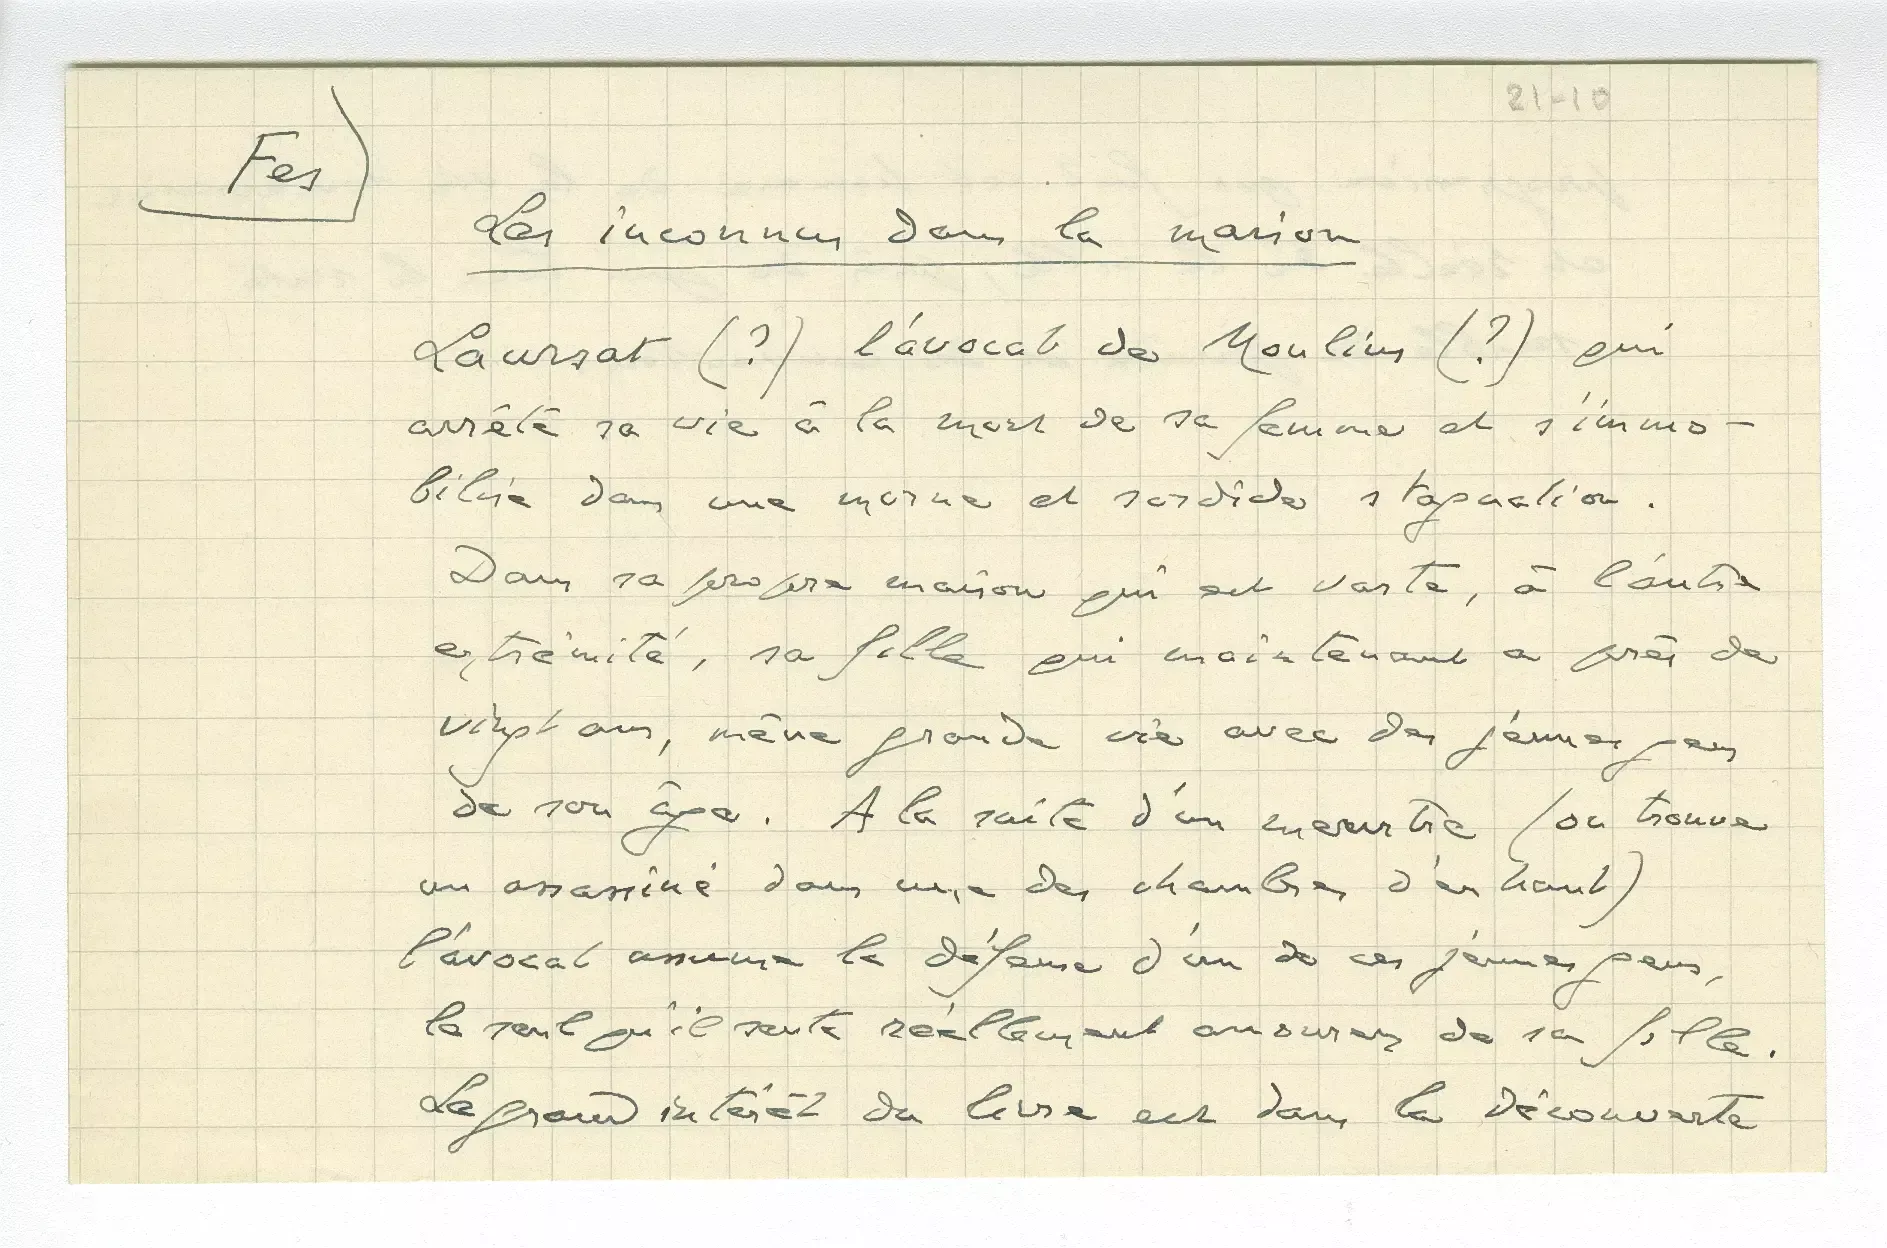 21-10
Fes
Les inconnus dans la maison
Laursat (?) l'avocat de Moulins (?) qui
arrêté sa vie à la mort de sa femme et s'immo-
bilise dans une morne et sordide stagnation.
Dans sa propre maison qui est vaste, à l'autre
extrémité, sa fille qui maintenant a près de
vingt ans, mène grande vie avec des jeunes gens
de son âge. A la suite d'un meurtre (on trouve
un assassiné dans une des chambres d'en haut)
l'avocat assume la défense d'un de ces jeunes gens,
le seul qu'il sente réellement amoureux de sa fille.
Le grand intérêt du livre est dans la découverte